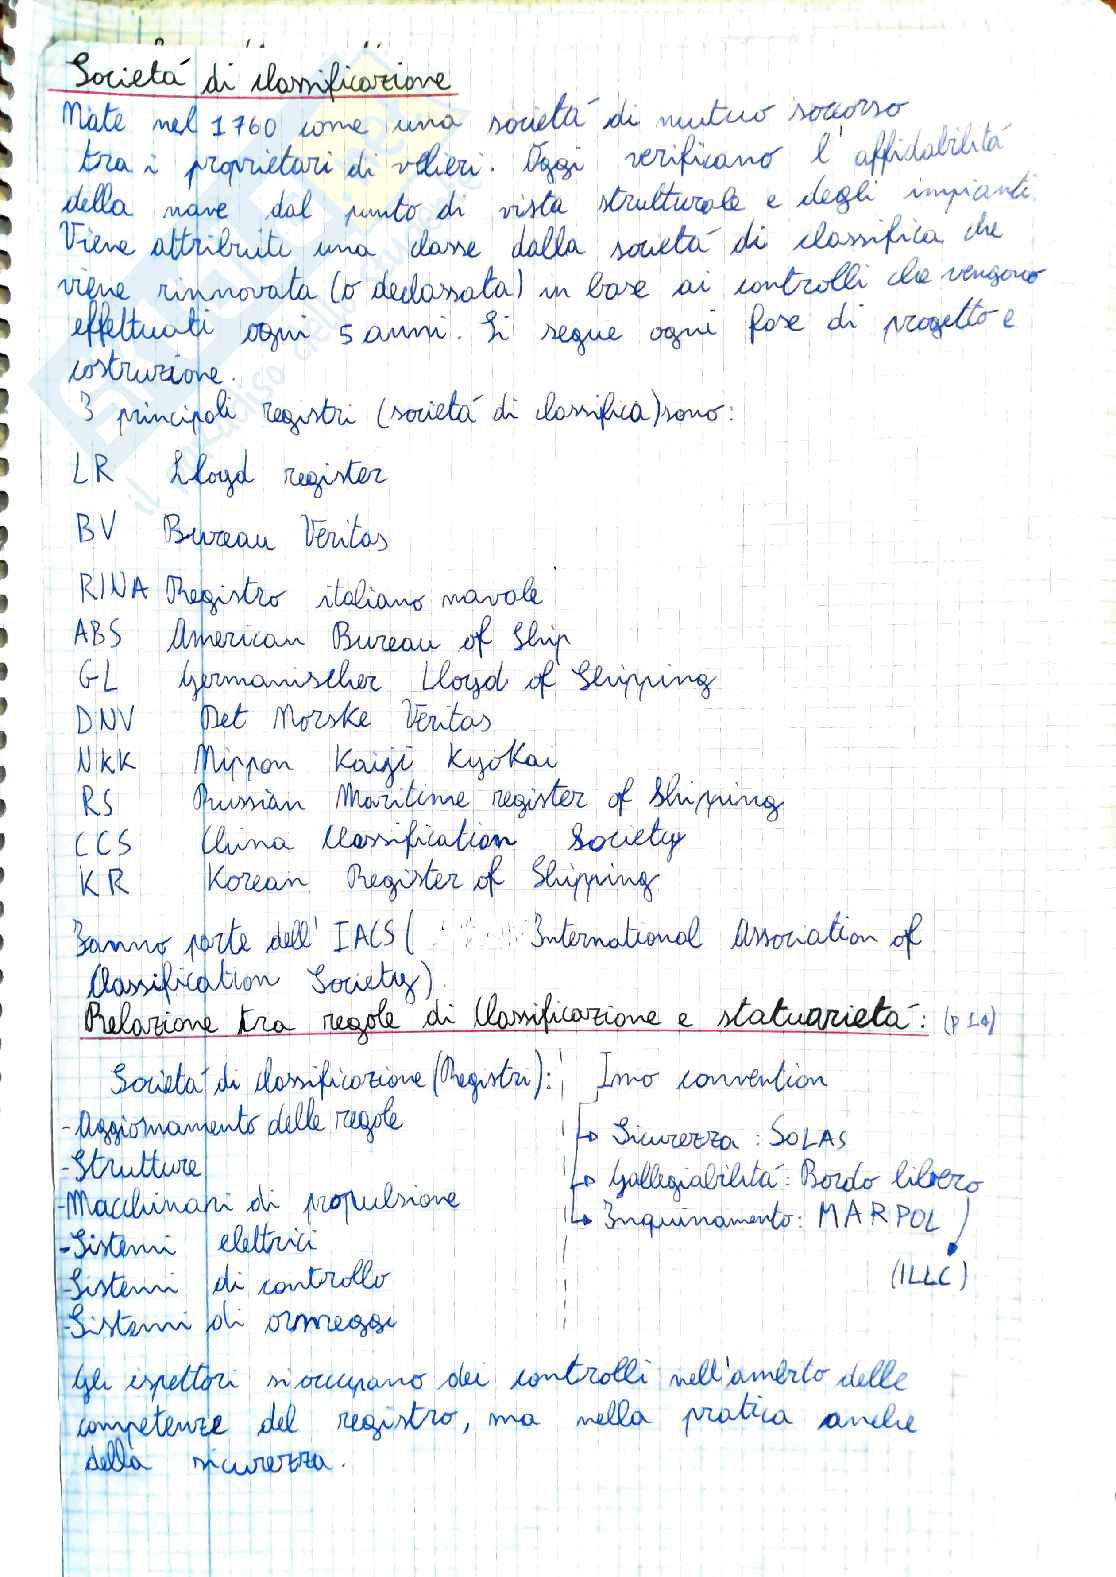 Societá di classificazione
Nate nel 1760 come una societá di mutuo soccorso
tra i proprietari di velieri. Oggi verificano l'affidabilitá
della nave dal punto di vista strutturale e degli impianti.
Viene attribuita una classe dalla societá di classifica che
viene rinnovata (o declassata) in base ai controlli che vengono
effettuati ogni 5 anni. Si segue ogni fase di progetto e
costruzione.
I principali registri (societá di classifica) sono:
LR Lloyd register
BV Bureau Veritas
RINA Registro italiano navale
ABS American Bureau of Ship
GL Germanischer Lloyd of Shipping
DNV Det Norske Veritas
NKK Nippon Kaigi Kyokai
RS Russian Maritime register of Shipping
CCS China Classification Society
KR Korean Register of Shipping
Fanno parte dell'IACS (International Association of
Classification Society)
Relazione tra regole di Classificazione e statuarietá: (p 14)
Societá di classificazione (Registri): Imo convention
- Aggiornamento delle regole
Sicurezza: SOLAS
- Strutture
Gallegiabilitá: Bordo libero
- Macchinari di propulsione
Inquinamento: MARPOL
- Sistemi elettrici
(ILLC)
- Sistemi di controllo
- Sistemi di ormeggi
Gli ispettori si occupano dei controlli nell'ambito delle
competenze del registro, ma nella pratica anche
della sicurezza.
SKUOLA
il paradiso dello studente